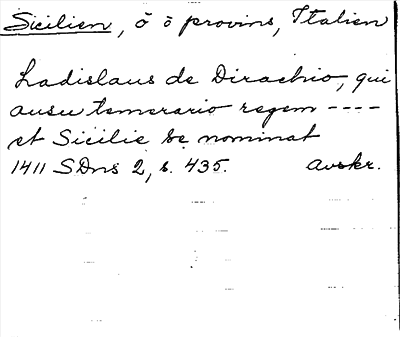 Sicilien, ö o provins, Italien
Ladislaus de Dirachio, qui
ausu temerario regem ----
et Sicilie se nominat
1411 SDns 2, s. 435. Avskr.